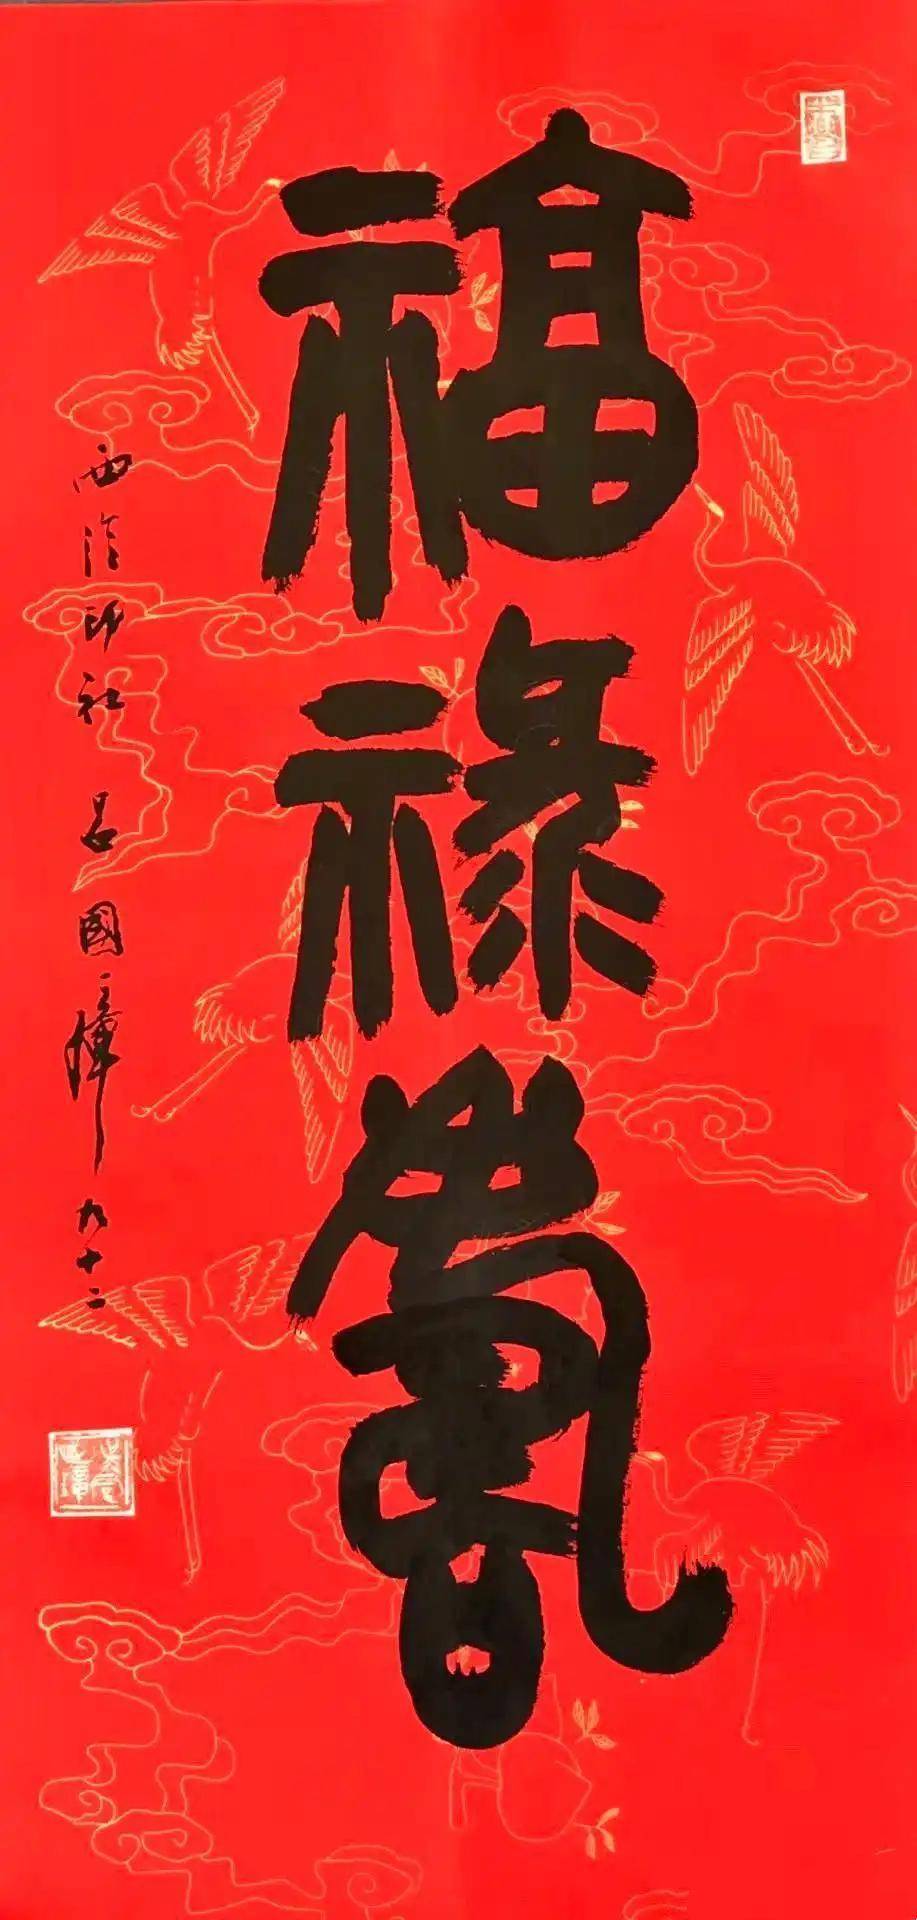 福祿壽
西泠印社呂國璋九十二